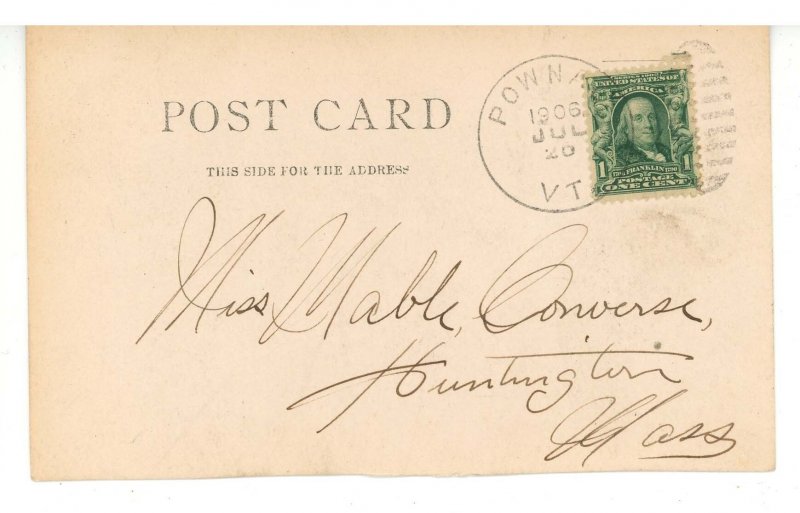 POST CARD
THIS SIDE FOR THE ADDRESS
POWNA
1906
JUL
26
VT
SERIES 1902
UNITED STATES OF
AMERICA
FRANKLIN
1 POSTAGE 1
ONE CENT
Miss Mable, Converse,
Huntington
Mass